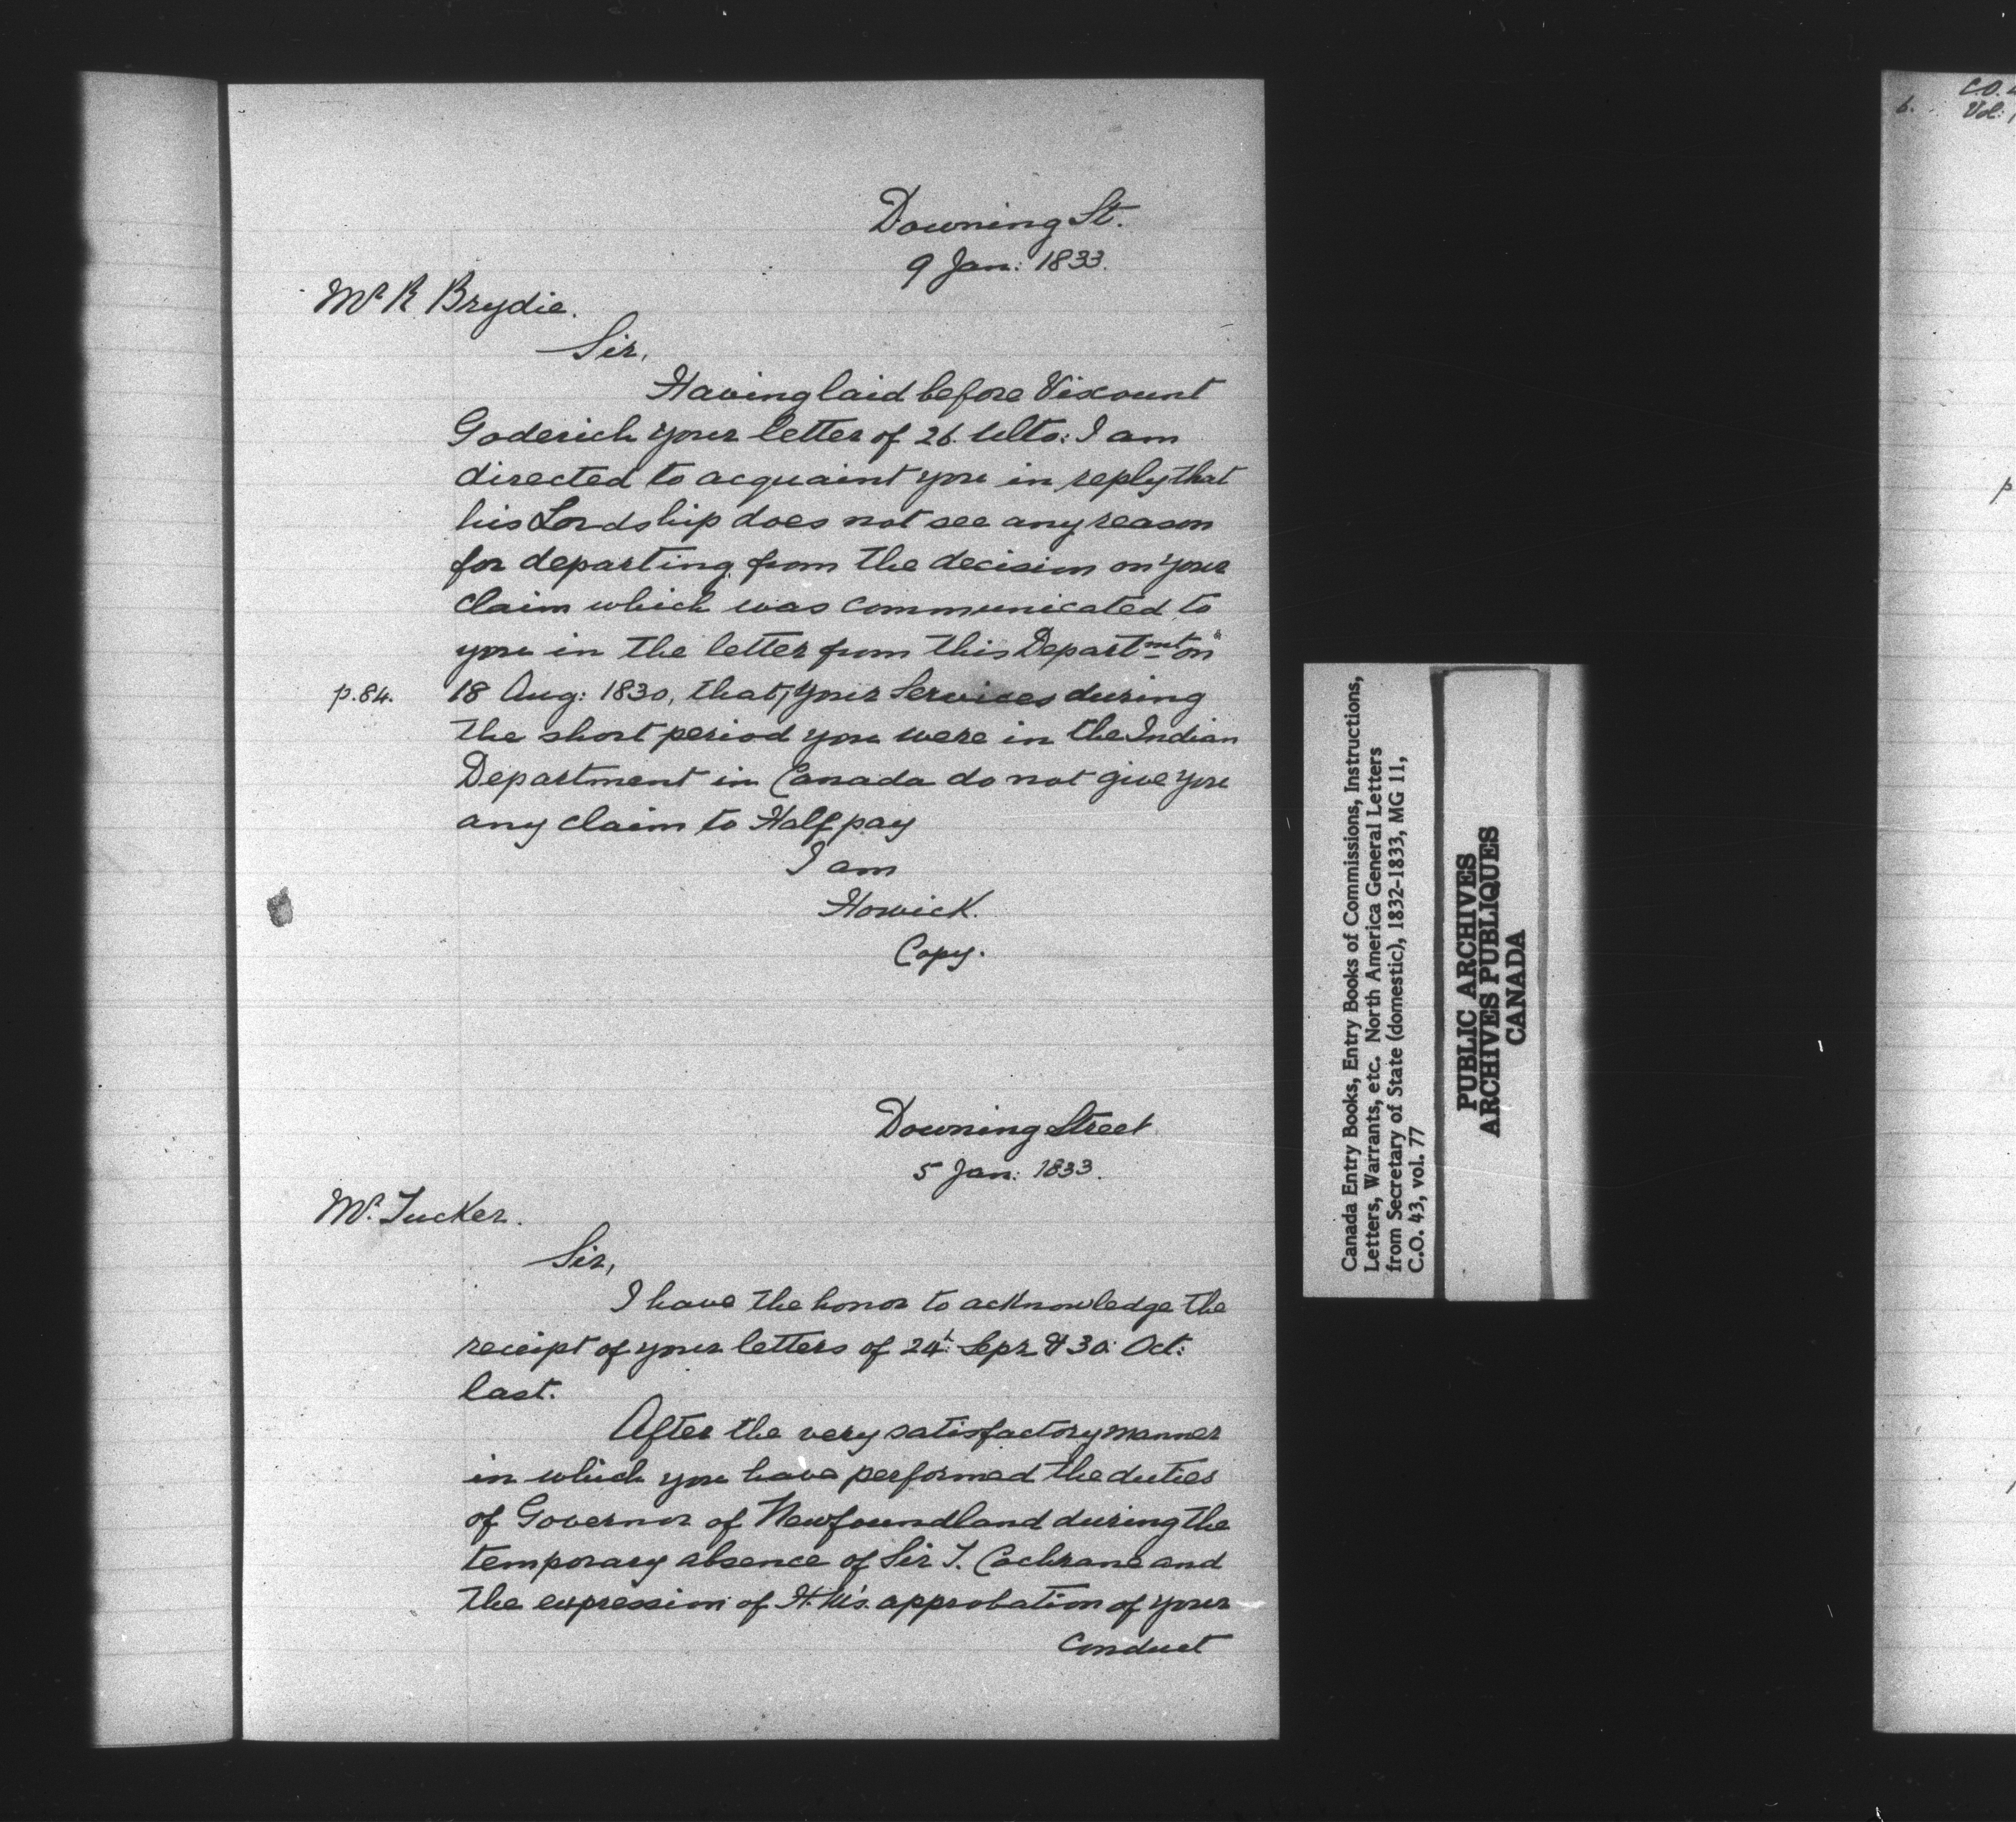 Downing St.
9 Jan: 1833.
Mr R Brydie.
Sir,
Having laid before Viscount
Goderich your letter of 26. Ulto: I am
directed to acquaint you in reply that
his Lordship does not see any reason
for departing from the decision on your
claim which was communicated to
you in the letter from this Departmt on
p.84. 18 Aug: 1830, that, your Services during
the short period you were in the Indian
Department in Canada do not give you
any claim to Half pay
I am
Howick.
Copy.
Downing Street
5 Jan: 1833.
Mr. Tucker.
Sir,
I have the honor to acknowledge the
receipt of your letters of 24th Sepr & 30 Oct:
last.
After the very satisfactory manner
in which you have performed the duties
of Governor of Newfoundland during the
temporary absence of Sir T. Cochrane and
the expression of H.M's. approbation of your
Conduct
Canada Entry Books, Entry Books of Commissions, Instructions,
Letters, Warrants, etc. North America General Letters
from Secretary of State (domestic), 1832-1833, MG 11,
C.O. 43, vol. 77
PUBLIC ARCHIVES
ARCHIVES PUBLIQUES
CANADA
C.O.
6. Vol:
p